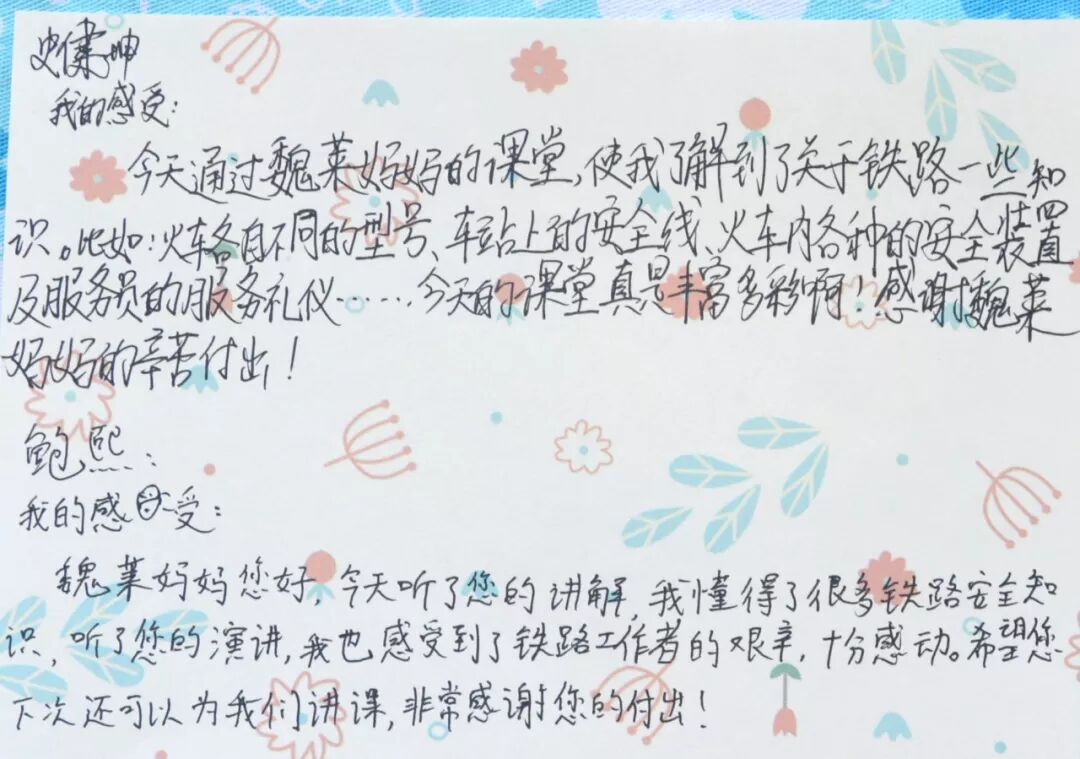 史傢坤
我的感受：
今天通过魏莱妈妈的课堂，使我了解到了关于铁路一些知
识。比如：火车各自不同的型号、车站上的安全线、火车内各种的安全装置
及服务员的服务礼仪……今天的课堂真是丰富多彩啊！感谢魏莱
妈妈的辛苦付出！
鲍熙：
我的感受：
魏莱妈妈您好，今天听了您的讲解，我懂得了很多铁路安全知
识，听了您的演讲，我也感受到了铁路工作者的艰辛，十分感动。希望您
下次还可以为我们讲课，非常感谢您的付出！